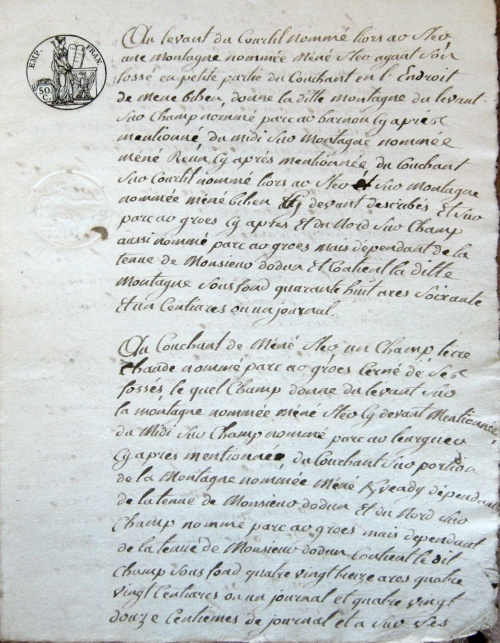 EMP. FRAN.
50 C.
Au levant du Courtil nommé liors ao Neo
une montagne nommée Méné Neo ayant Son
fossé en petite partie du Couchant en l'Endroit
de mene bihen, donne la ditte montagne du levant
Sur Champ nommé parc ao barnon Cy après
mentionné du midi Sur Montagne nommée
méné Reun Cy après mentionnée du Couchant
Sur Courtil nommé liors ao Neo Et Sur Montagne
nommée méné bihen Cy devant describés Et Sur
parc ao groes Cy après Et du Nord Sur Champ
aussi nommé parc ao groes mais dépendant de la
tenue de Monsieur dodun Et Contient la ditte
Montagne Sous fond quarante huit ares Soixante
Et un Centiares ou un journal.
Au Couchant de Méné Neo un Champ, terre
Chaude nommé parc ao groes Cerné de Ses
fossés, le quel Champ donne du levant Sur
la montagne nommée méné Neo Cy devant Mentionnée
du Midi Sur Champ nommé parc ao
Cy après mentionné du Couchant Sur portion
de la Montagne nommée Méné dépendant
de la tenue de Monsieur dodun Et du Nord Sur
Champ nommé parc ao groes mais dépendant
de la tenue de Monsieur dodun Contient le dit
Champ Sous fond quatre vingt treize ares quatre
vingt Centiares ou un journal Et quatre vingt
douze Centiemes de journal Et a Sur Ses